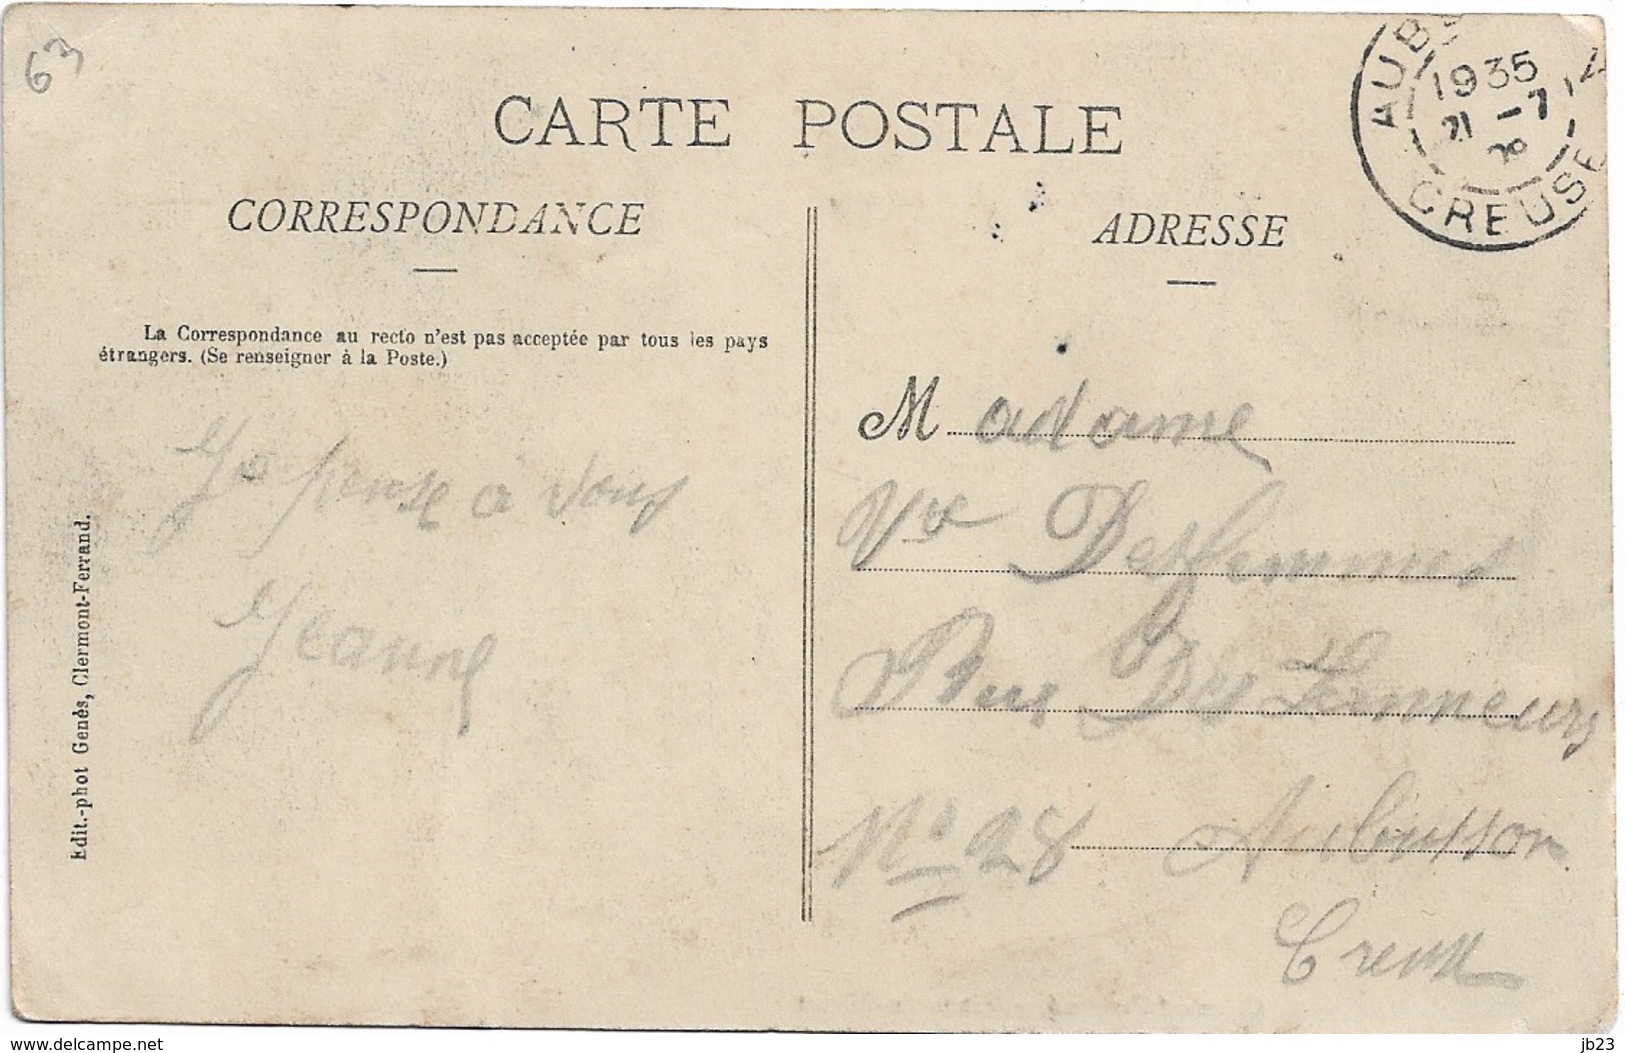 63
CARTE POSTALE
AUB
1935
21 -7
CREUSE
CORRESPONDANCE
ADRESSE
La Correspondance au recto n'est pas acceptée par tous les pays
étrangers. (Se renseigner à la Poste.)
Je pense à vous
Jeanne
Edit.-phot Genès, Clermont-Ferrand.
Madame
Vve Desfemmes
Rue Des Tanneurs
No 28 Aubusson
Creuse
www.delcampe.net
jb23